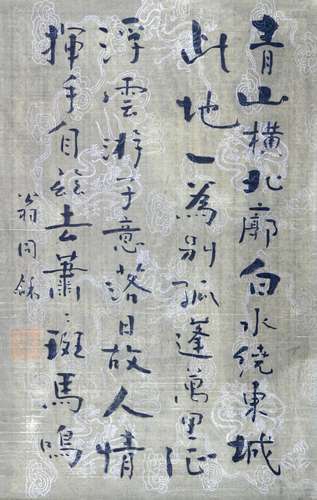 青山橫北廓白水繞東城
此地一為別孤蓬萬里征
浮雲游子意落日故人情
揮手自茲去蕭〻斑馬鳴
翁同龢